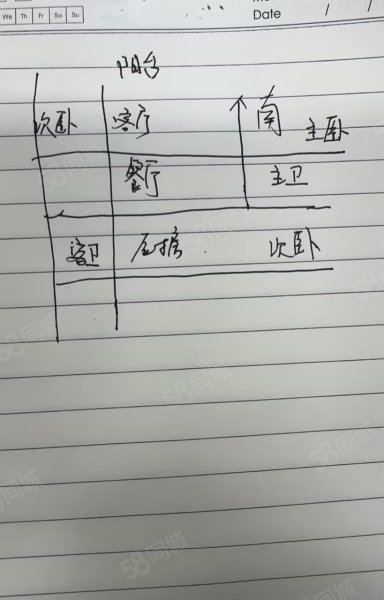 Date / /
We Th Fr Sa Su
阳台
次卧 客厅 南 主卧
餐厅 主卫
客卫 厨房 次卧
58同城
58同城
58同城
58同城
58同城
58同城